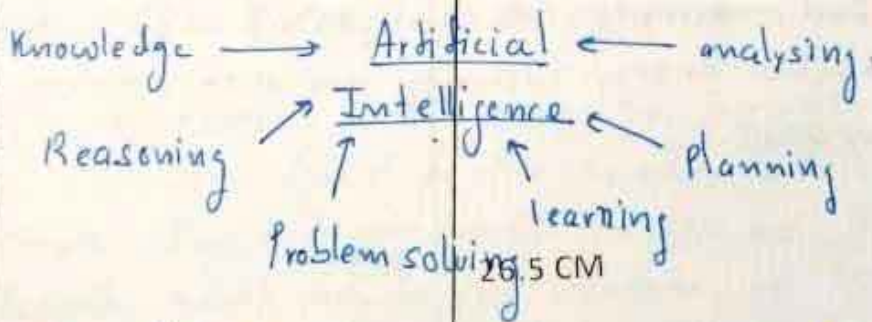 Knowledge → Artificial ← analysing
Reasoning Intelligence Planning
Problem solving learning
26.5 CM